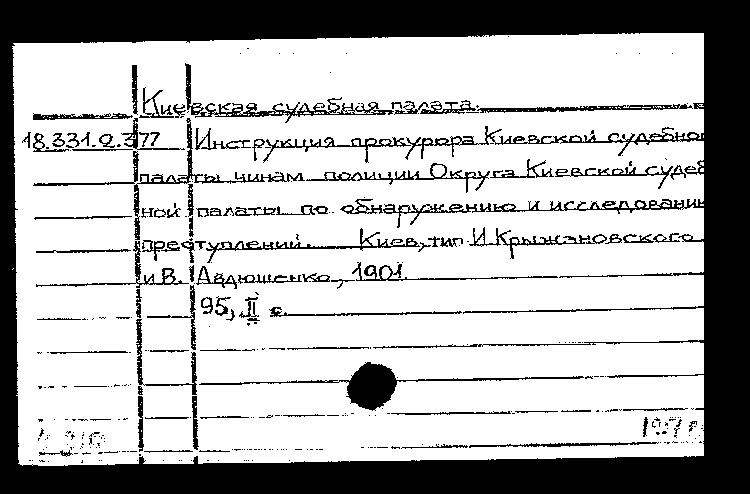 Киевская судебная палата.
18.331.2.377 Инструкция прокурора Киевской судебно
палаты чинам полиции Округа Киевской судеб
ной палаты по обнаружению и исследовани
преступлений. Киев, тип. И. Крыжановского
и В. Авдюшенко, 1901.
95, II с.